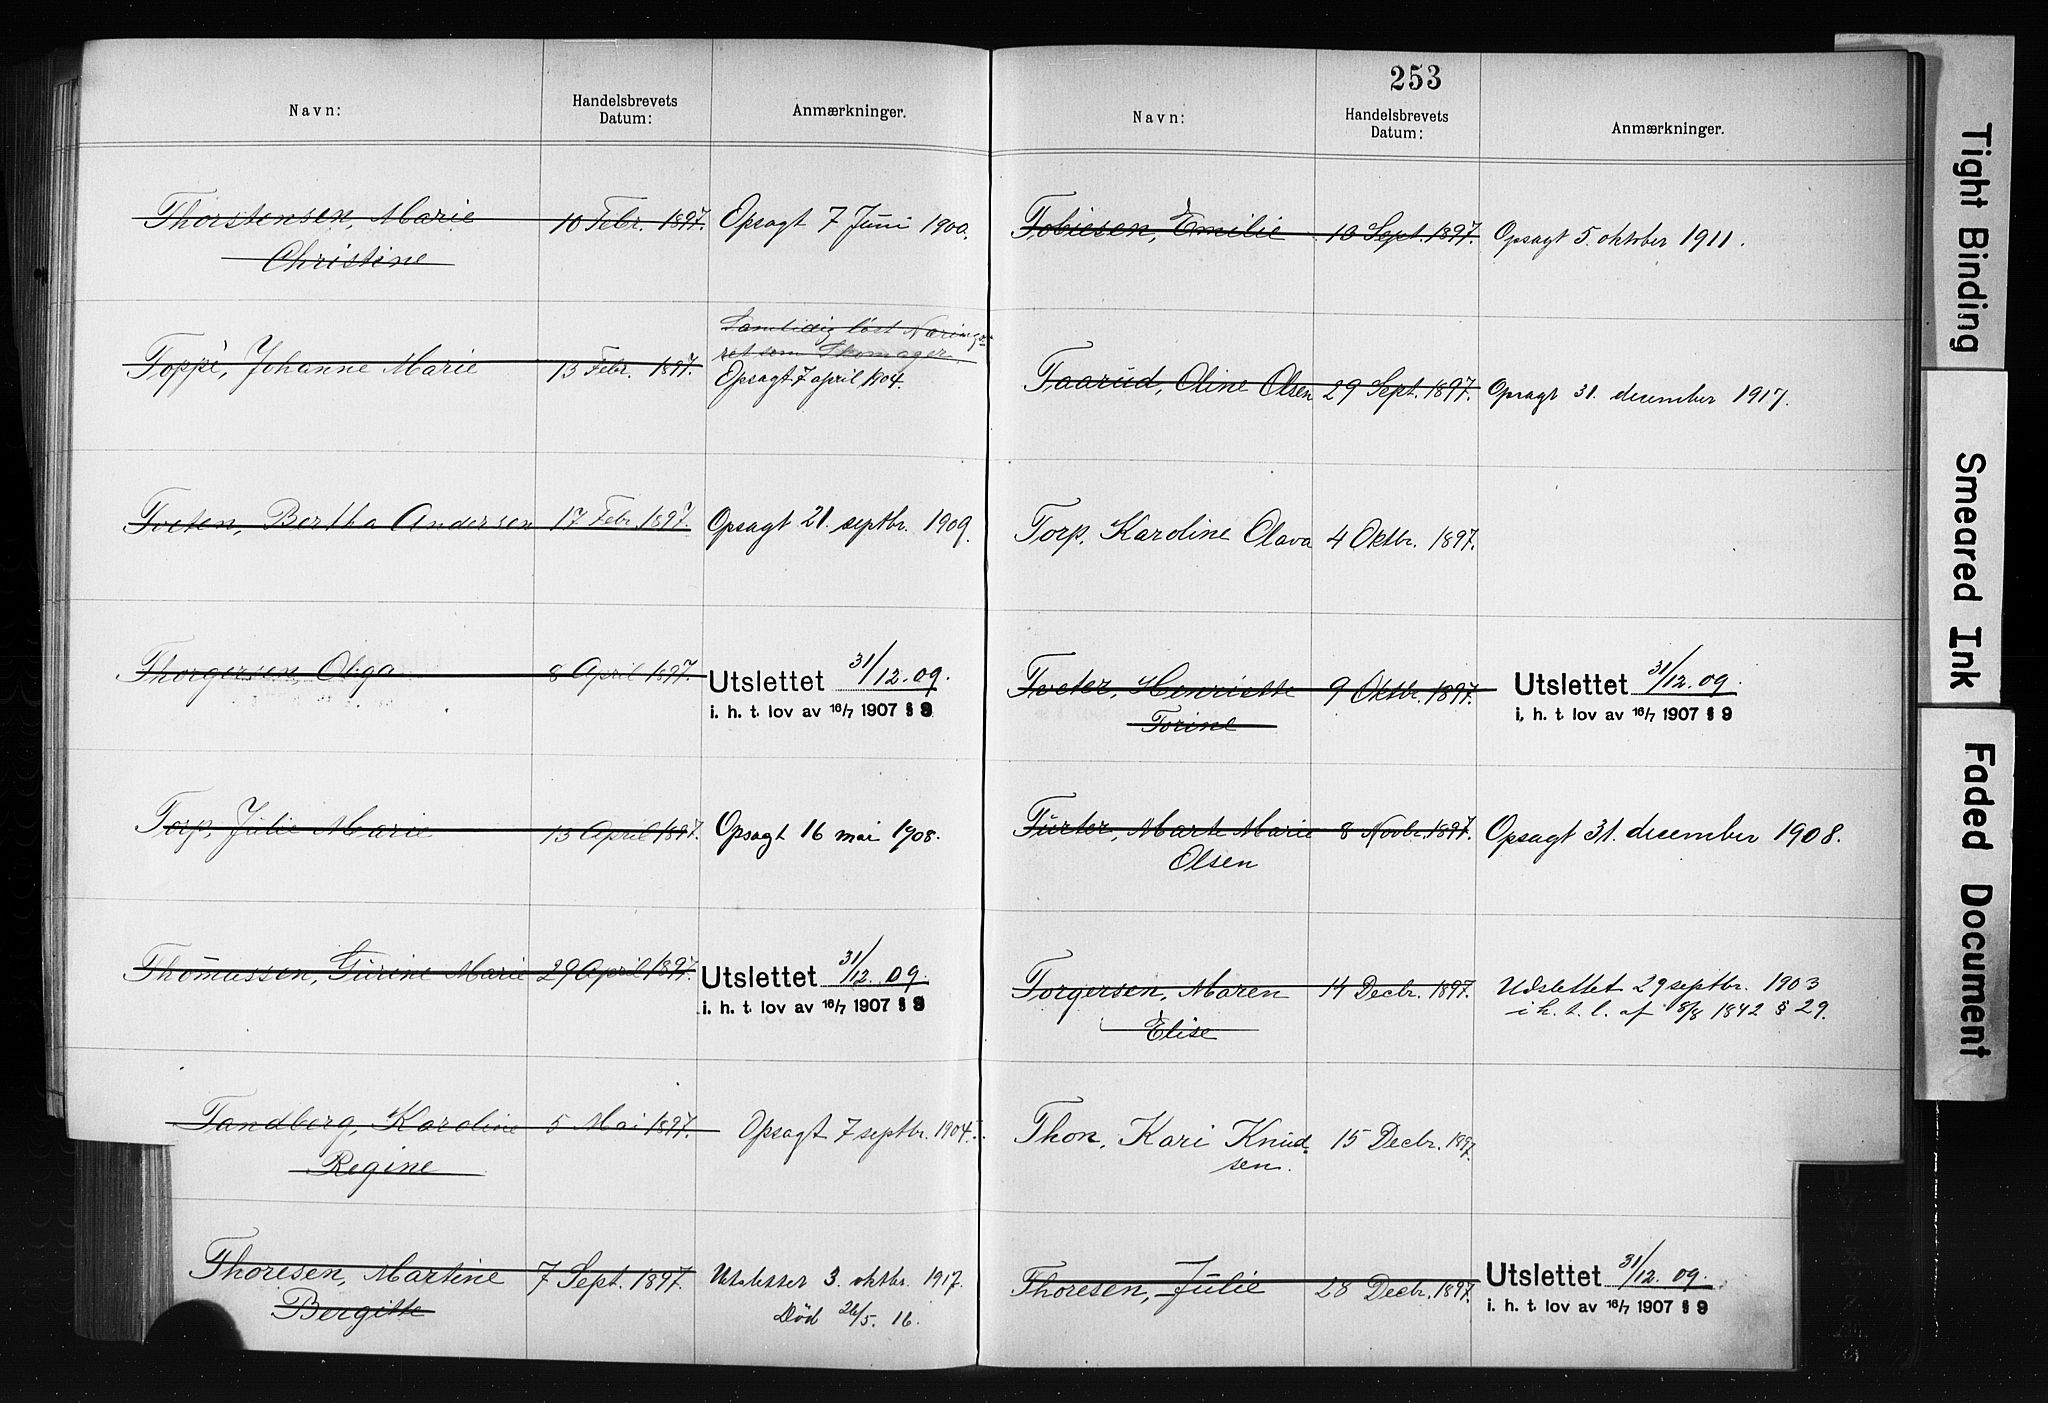 Navn:
Handelsbrevets
Datum:
Anmærkninger.
Thorstensen, Marie 10 Febr. 1897. Opsagt 7 Juni 1900.
Christine
Samtidig løst Nærings-
ret som Skomager.
Toppé, Johanne Marie 13 Febr. 1897.
Opsagt 7 april 1904.
Tveten, Bertha Andersen 17 Febr. 1897. Opsagt 21. septbr. 1909.
Thorgersen, Olga 8 April 1897. Utslettet 31/12.09.
i. h. t. lov av 16/7 1907 § 9
Torp, Julie Marie 13 April 1897. Opsagt 16 mai 1908.
Thomassen, Gurine Marie 29 April 1897. Utslettet 31/12.09.
i. h. t. lov av 16/7 1907 § 9
Tandberg, Karoline 5 Mai 1897. Opsagt 7 septbr. 1904.
Regine
Thoresen, Martine 7 Sept. 1897. Utslettet 3. oktbr. 1917.
Bergitte Død 26/5. 16.
253
Navn:
Handelsbrevets
Datum:
Anmærkninger.
Tobiesen, Emilie 10 Sept. 1897. Opsagt 5. oktober 1911.
Taarud, Oline Olsen 29 Sept. 1897. Opsagt 31. december 1917.
Torp, Karoline Olava 4 Oktbr. 1897.
Tveter, Henriette 9 Oktbr. 1897. Utslettet 31/12.09.
Torine i. h. t. lov av 16/7 1907 § 9
Furter, Marte Marie 8 Novbr. 1897. Opsagt 31. december 1908.
Olsen
Torgersen, Maren 14 Decbr. 1897. Udslettet 29 septbr. 1903
Elise i h. t. l. af 8/8 1842 § 29.
Thon, Kari Knud- 15 Decbr. 1897.
sen.
Thoresen, Julie 28 Decbr. 1897. Utslettet 31/12.09.
i. h. t. lov av 16/7 1907 § 9
Tight Binding
Smeared Ink
Faded Document